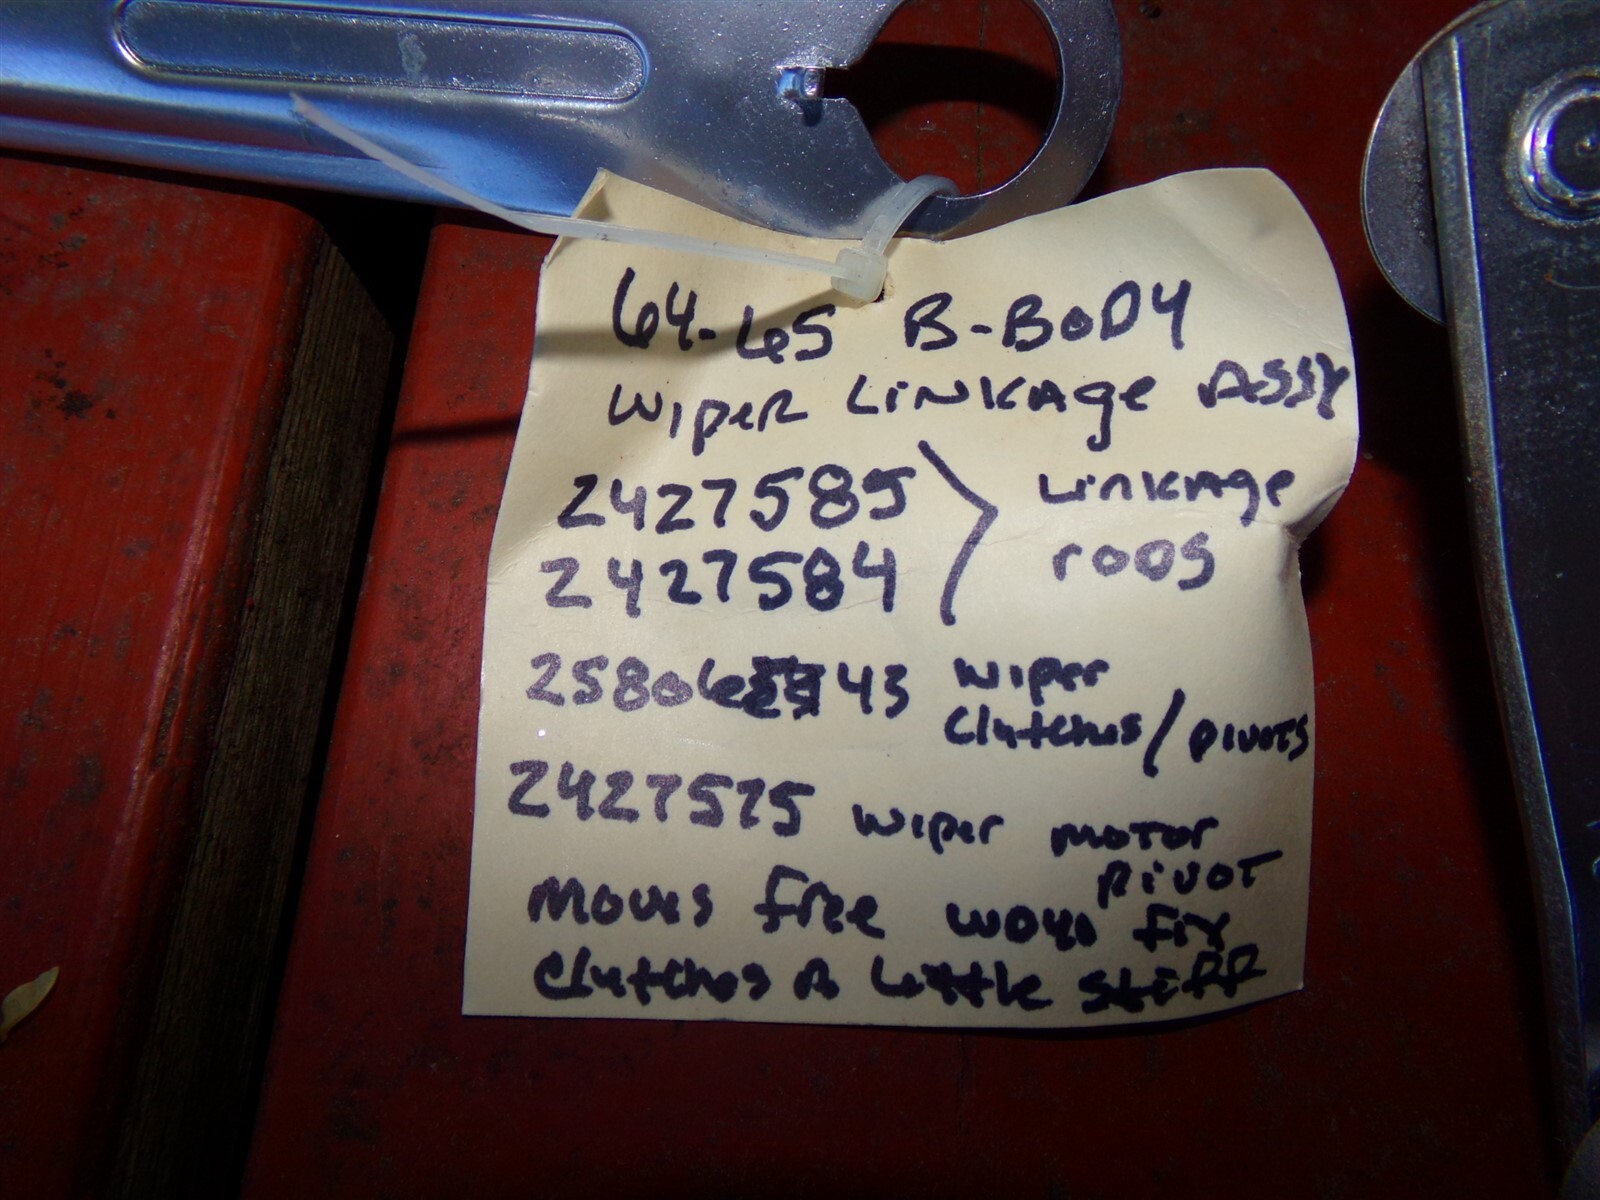 64-65 B-BODY
WIPER LINKAGE ASSY
2427585
2427584
LINKAGE
rODS
25806 43 WIPER
Clutches / PIVOTS
2427575 WIPER MOTOR
PIVOT
MOVES FREE
Clutches A Little Stiff